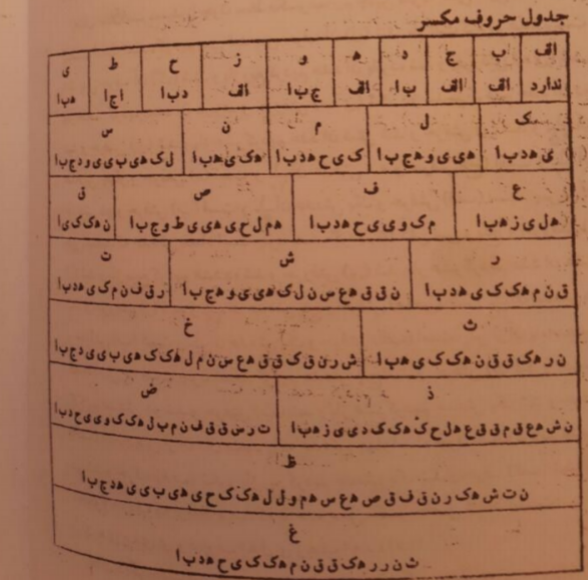 جدول حروف مکسر
الف ب ج د ه و ز ح ط ی
ندارد الف الف ب ا الف ج ب ا الف د ب ا ا ج ا ه ب ا
ک ل م ن س
ی ه د ب ا ه ی ی و ه ج ب ا ک ی ح ه د ب ا ه ک ی ه ب ا ل ک ه ی ب ی ی و د ج ب ا
ع ف ص ق
ه ل ی ز ه ب ا م ک و ی ی ح ه د ب ا ه م ل ح ی ه ی ی ط و ج ب ا ن ه ک ک ی ا
ر ش ت
ق ن م ه ک ک ی ه د ب ا ن ق ق ه ع س ن ل ک ه ی ی و ه ج ب ا ر ق ف ن م ک ی ه د ب ا
ث خ
ن ر ه ک ق ق ن ه ک ک ی ه ب ا ش ر ن ق ک ق ق ه ع س ن م ل ه ک ک ه ی ب ی ی د ج ب ا
ذ ض
ن ش ه ع ق م ق ق ع ه ل ح ک ه ک ک د ی ی ز ه ب ا ت ر س ق ق ف ن م ب ل ه ک ک و ی ی ح د ب ا
ظ
ن ت ش ه ک ر ن ق ف ق ص ه ع س ه م و ل ل ه ک ک ح ی ه ی ب ی ی ه د ج ب ا
غ
ث ن ر ر ه ک ق ق ن م ه ک ک ی ح ه د ب ا